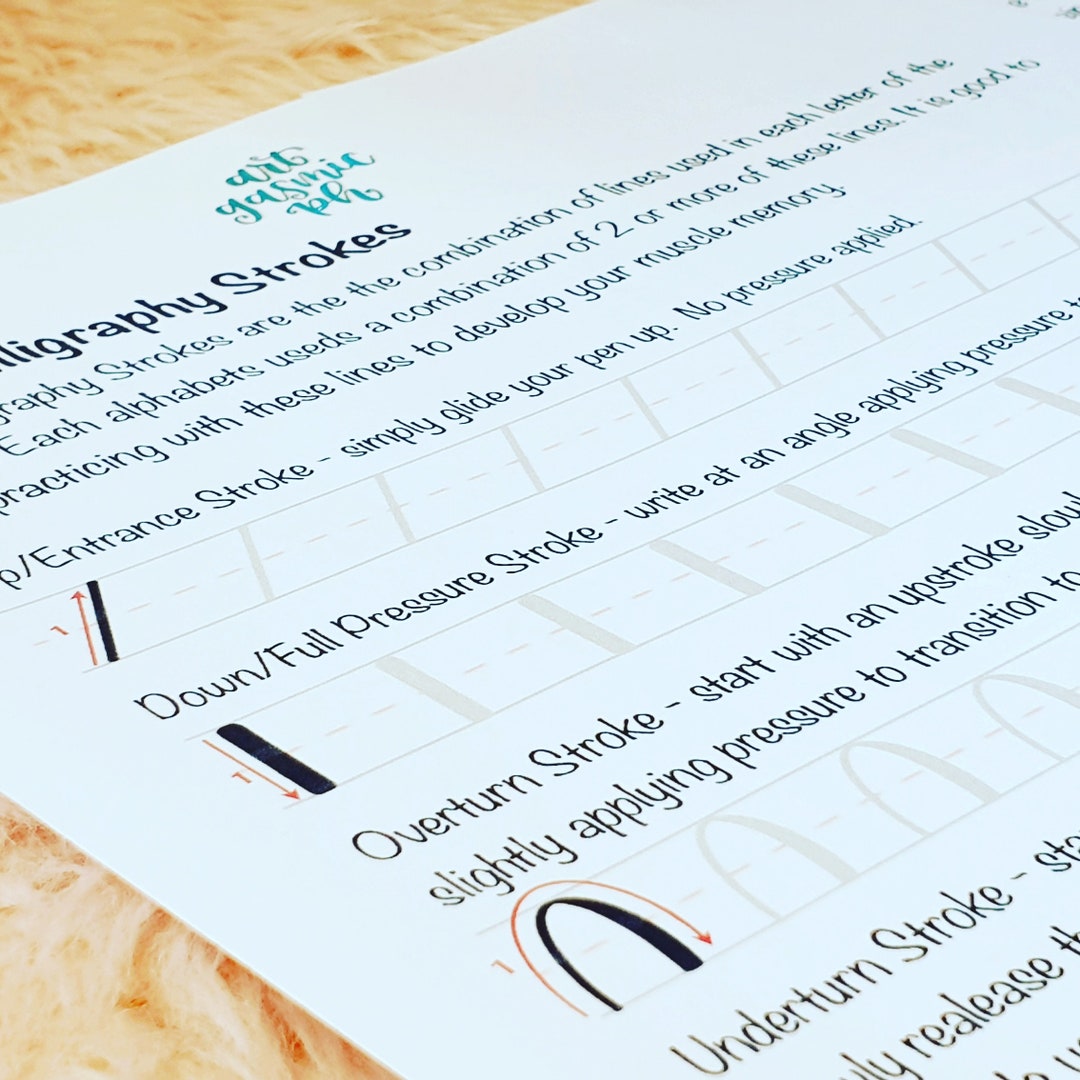 art
gasmic
ph
lligraphy Strokes
graphy Strokes are the the combination of lines used in each letter of the
Each alphabets useds a combination of 2 or more of these lines. It is good to
practicing with these lines to develop your muscle memory.
p/Entrance Stroke - simply glide your pen up. No pressure applied.
1
Down/Full Pressure Stroke - write at an angle applying pressure t
1
Overturn Stroke - start with an upstroke slowl
slightly applying pressure to transition to
1
Underturn Stroke - sta
ly realease th